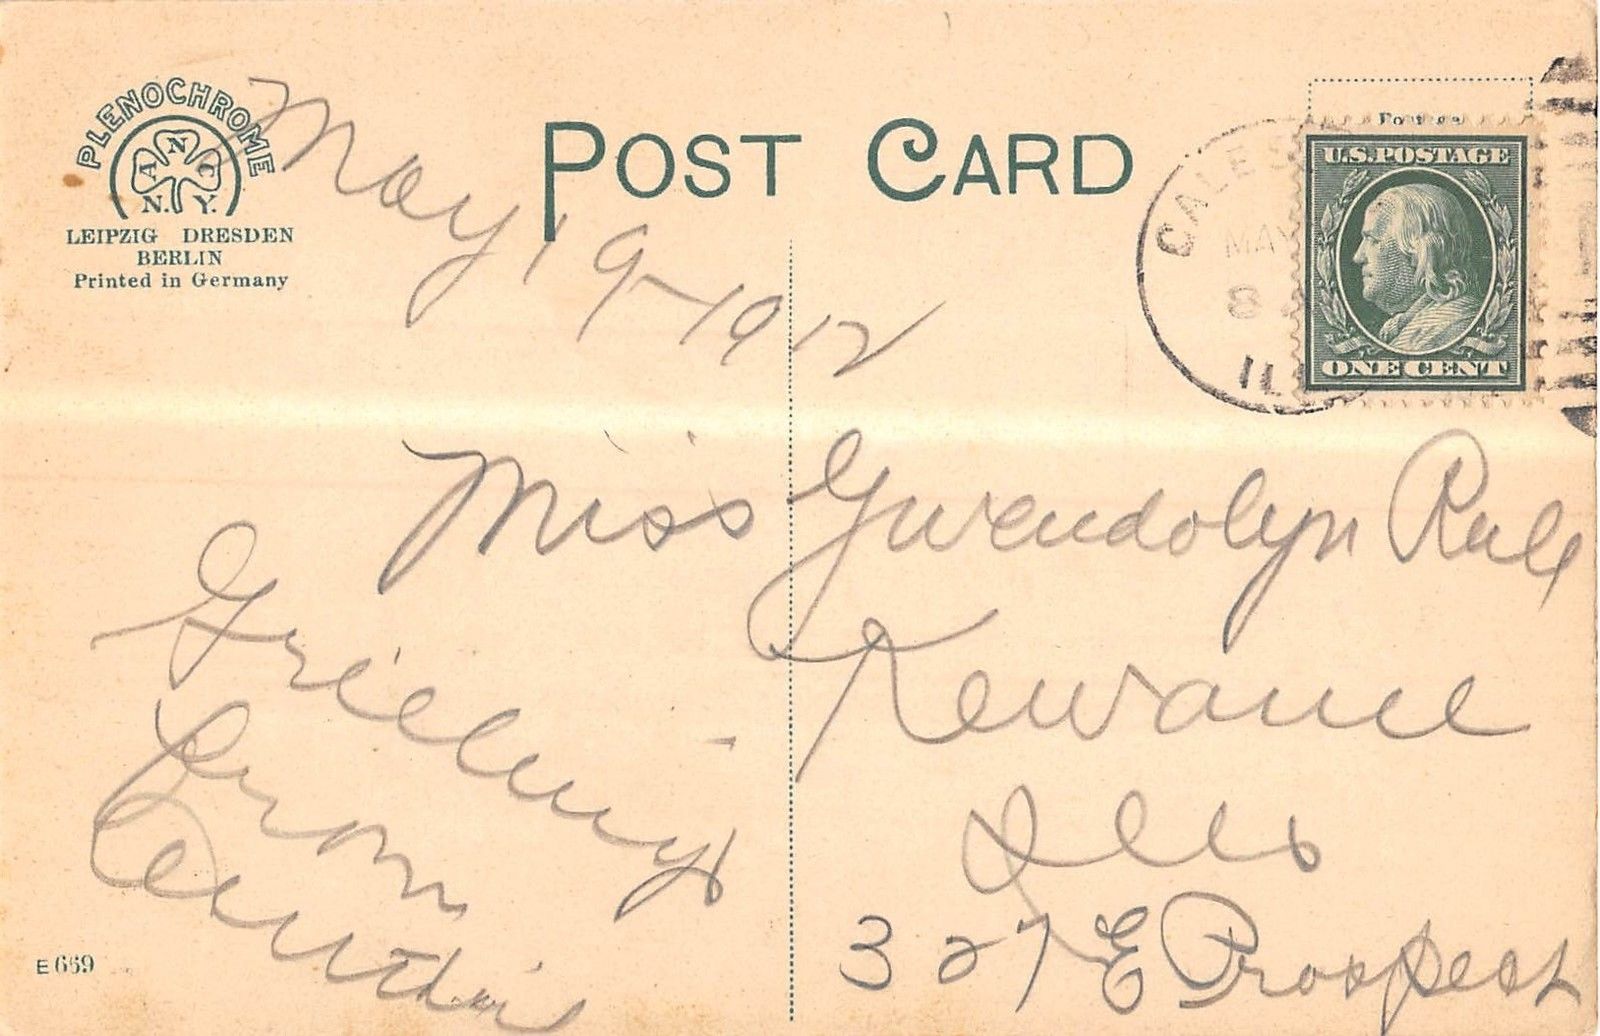 PLENOCHROME
ANC
N.Y.
LEIPZIG DRESDEN
BERLIN
Printed in Germany
POST CARD
Postage
U.S. POSTAGE
ONE CENT
GALES
MAY
8
ILL
May, 19-1912
Miss Gwendolyn Rule
Kewanee
Ills
327 E Prospect
Greetings
from
E669